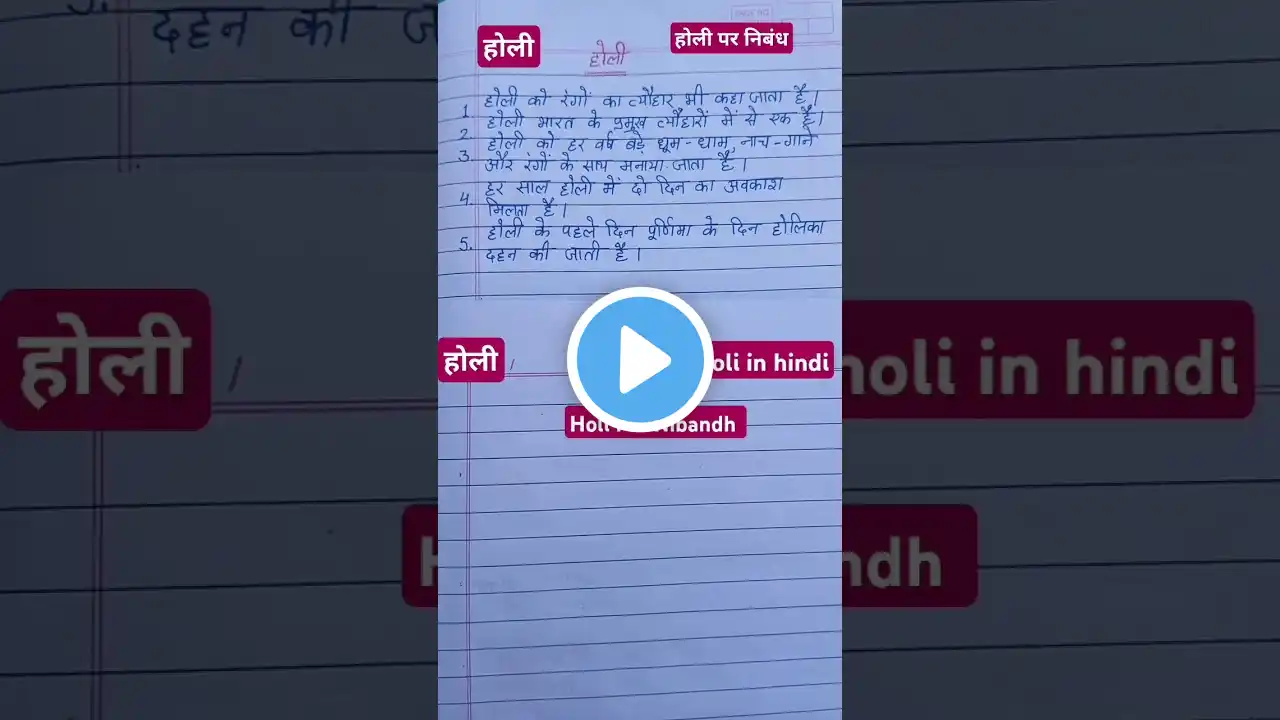 दहन की
होली
होली पर निबंध
होली
1. होली को रंगों का त्यौहार भी कहा जाता है।
2. होली भारत के प्रमुख त्यौहारों में से एक है।
3. होली को हर वर्ष बड़े धूम-धाम, नाच-गाने
और रंगों के साथ मनाया जाता है।
4. हर साल होली में दो दिन का अवकाश
मिलता है।
5. होली के पहले दिन पूर्णिमा के दिन होलिका
दहन की जाती है।
होली
होली
oli in hindi
holi in hindi
Holi
ibandh
ndh